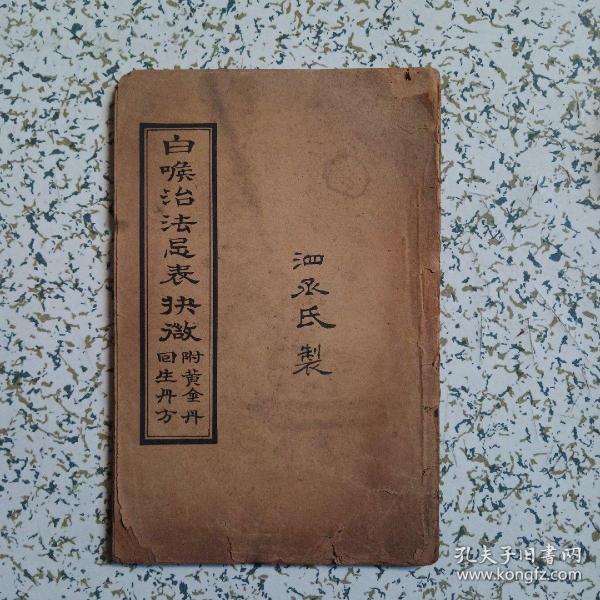 白喉治法忌表抉微
附黃金丹
回生丹方
泗丞氏製
孔夫子旧書网
www.kongfz.com